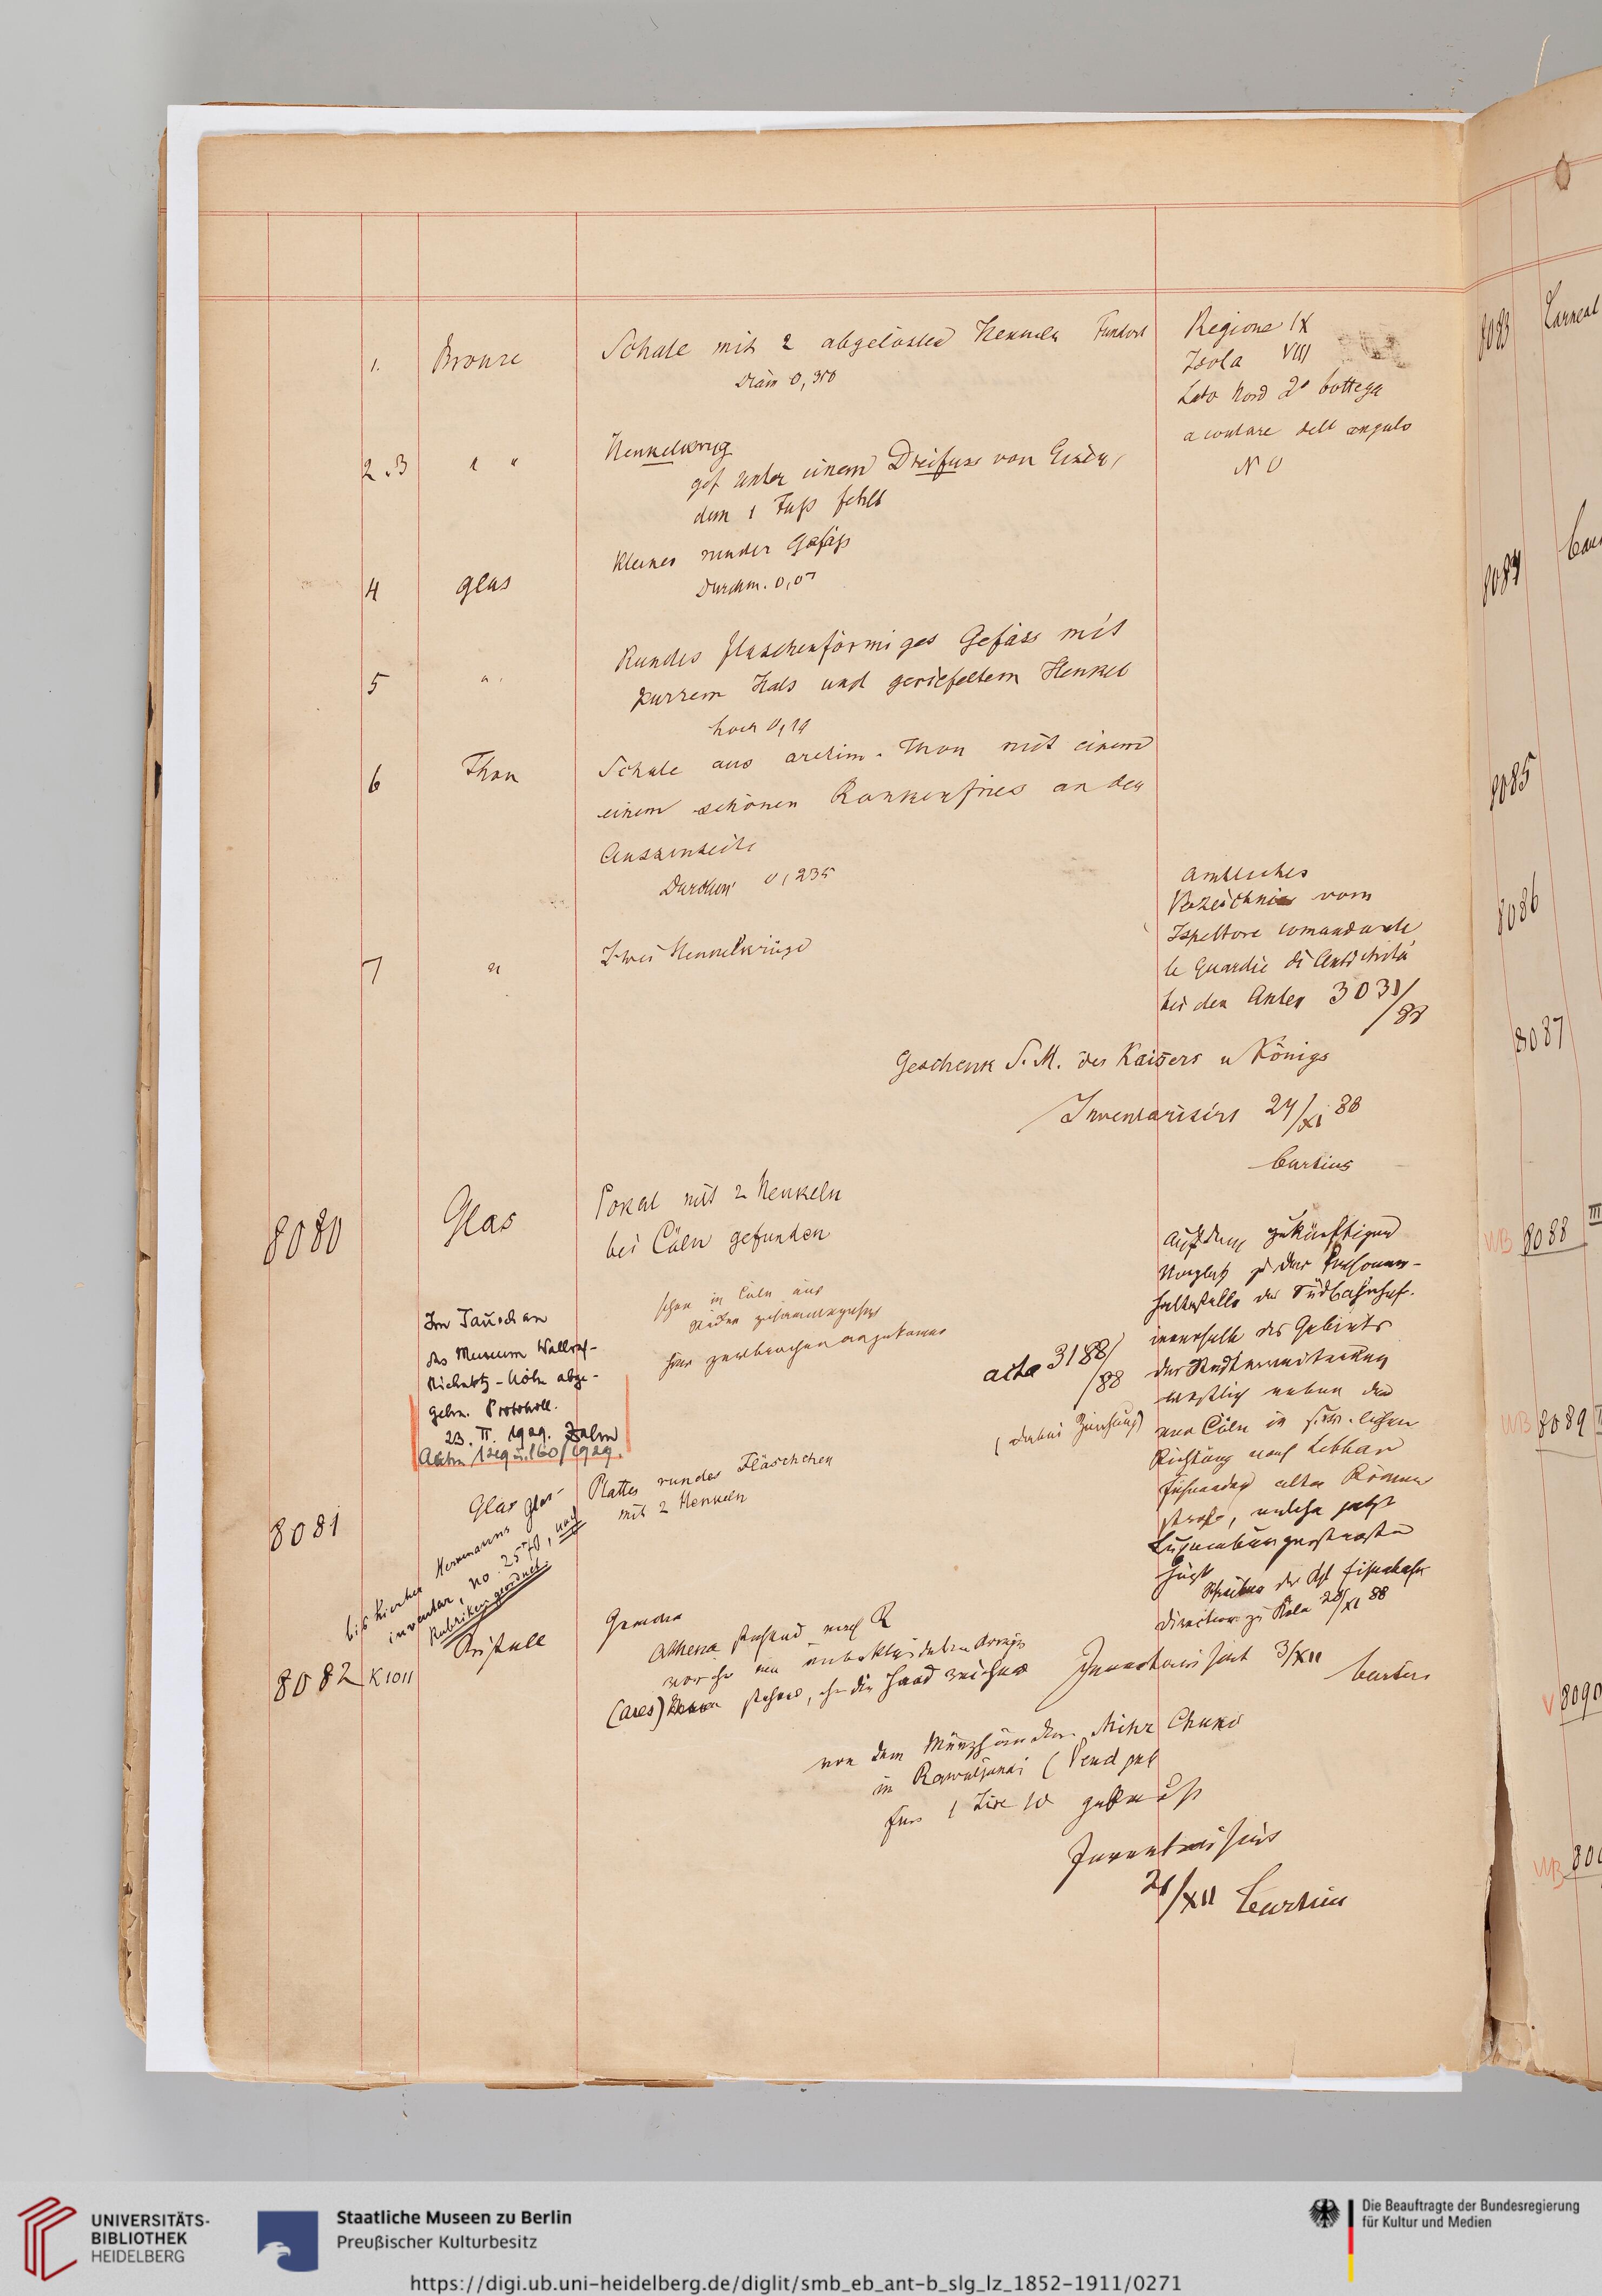 1. Bronze Schale mit 2 abgelösten Henkeln Fundort Regione IX
Diam 0,310 Isola VIII
Lato Nord 2a bottega
a contare dell angulo
N O
2 u 3 " " Henkelkrug
gef unter einem Dreifuss von Eisen,
dem 1 Fuß fehlt
4 Glas Kleines runder Gefäß
Durchm. 0,07
5 " Rundes flaschenförmiges Gefäss mit
kurzem Hals und geriefeltem Henkel
hoch 0,14
6 Thon Schale aus aretin. Thon mit einem
einem schönen Rankenfries an der
Aussenseite
Durchm 0,235
7 " Zwei Henkelkrüge
Amtliches
Verzeichniss vom
Ispettore comandante
le Guardie di Antichità
bei den Akten 3031/88
Geschenk S. M. des Kaisers u Königs
Inventarisirt 24/XI 88
Curtius
8080 Glas Pokal mit 2 Henkeln
bei Cöln gefunden
schon in Cöln aus
zusammengesetzt
hier zerbrochen angekommen
Im Tausch an
das Museum Wallraf-
Richartz-Köln abge-
geben. Protokoll.
23. II. 1929. Zahn
acta 3188/88
(dabei Zeichnung)
Auf dem zukünftigen
Vorplatz zu der Personen-
haltestelle der Südbahnhof.
innerhalb des Gebiets
der Stadterweiterung
westlich neben der
von Cöln in s.w.licher
Richtung nach
führenden alten Römer
straße, welche jetzt
Luxemburgerstrasse
heißt
Schreiben der Kgl Eisenbahn
Direction zu Köln 28/XI 88
8081 Glas Plattes rundes Fläschchen
mit 2 Henkeln
bis hierher Hermanns Glas-
inventar, no. 2570, nach
Rubriken geordnet.
8082 K1011 Kristall Gemme
Athena stehend nach R
vor ihr ein unbekleideter Krieger
(Ares) stehend, ihr die Hand reichend
Inventarisirt 3/XII Curtius
von dem Münzhändler
in
für 1 gekauft
Inventarisirt
21/XII Curtius
8083
8084
8085
8086
8087
WB 8088 III
WB 8089
V 8090
WB
UNIVERSITÄTS-
BIBLIOTHEK
HEIDELBERG
Staatliche Museen zu Berlin
Preußischer Kulturbesitz
Die Beauftragte der Bundesregierung
für Kultur und Medien
https://digi.ub.uni-heidelberg.de/diglit/smb_eb_ant-b_slg_lz_1852-1911/0271